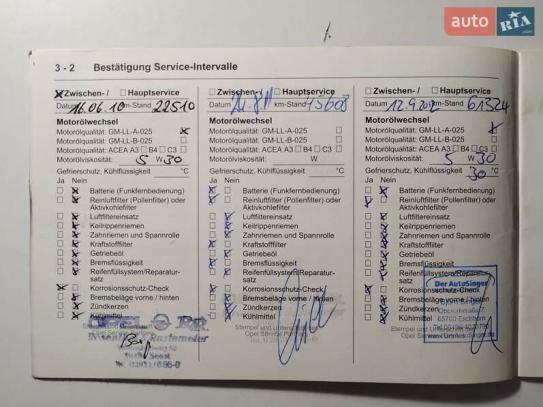 auto RIA.com
3 - 2 Bestätigung Service-Intervalle
Zwischen- / Hauptservice
Datum 16.06.10 km-Stand 22510
Motorölwechsel
Motorölqualität: GM-LL-A-025
Motorölqualität: GM-LL-B-025
Motorölqualität: ACEA A3 B4 C3
Motorölviskosität: 5 W 30
Gefrierschutz, Kühlflüssigkeit °C
Ja Nein
Batterie (Funkfernbedienung)
Reinluftfilter (Pollenfilter) oder
Aktivkohlefilter
Luftfiltereinsatz
Keilrippenriemen
Zahnriemen und Spannrolle
Kraftstofffilter
Getriebeöl
Bremsflüssigkeit
Reifenfüllsystem/Reparatur-
satz
Korrosionsschutz-Check
Bremsbeläge vorne / hinten
Zündkerzen
Kühlmittel
OPEL
Zwischen- / Hauptservice
Datum km-Stand 45608
Motorölwechsel
Motorölqualität: GM-LL-A-025
Motorölqualität: GM-LL-B-025
Motorölqualität: ACEA A3 B4 C3
Motorölviskosität: W
Gefrierschutz, Kühlflüssigkeit °C
Ja Nein
Batterie (Funkfernbedienung)
Reinluftfilter (Pollenfilter) oder
Aktivkohlefilter
Luftfiltereinsatz
Keilrippenriemen
Zahnriemen und Spannrolle
Kraftstofffilter
Getriebeöl
Bremsflüssigkeit
Reifenfüllsystem/Reparatur-
satz
Korrosionsschutz-Check
Bremsbeläge vorne / hinten
Zündkerzen
Kühlmittel
Stempel und
Opel Service
Zwischen- / Hauptservice
Datum 12.9.2012 km-Stand 61524
Motorölwechsel
Motorölqualität: GM-LL-A-025
Motorölqualität: GM-LL-B-025
Motorölqualität: ACEA A3 B4 C3
Motorölviskosität: 5 W 30
Gefrierschutz, Kühlflüssigkeit 30 °C
Ja Nein
Batterie (Funkfernbedienung)
Reinluftfilter (Pollenfilter) oder
Aktivkohlefilter
Luftfiltereinsatz
Keilrippenriemen
Zahnriemen und Spannrolle
Kraftstofffilter
Getriebeöl
Bremsflüssigkeit
Reifenfüllsystem/Reparatur-
satz
Korrosionsschutz-Check
Bremsbeläge vorne / hinten
Zündkerzen
Kühlmittel
Der AutoSinger